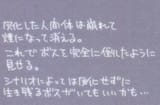 灰化した人間体は崩れて
煙になって消える。
これでボスを完全に倒したように
見せる。
シナリオによっては灰化せずに
生き残るボスがいてもいいかも…